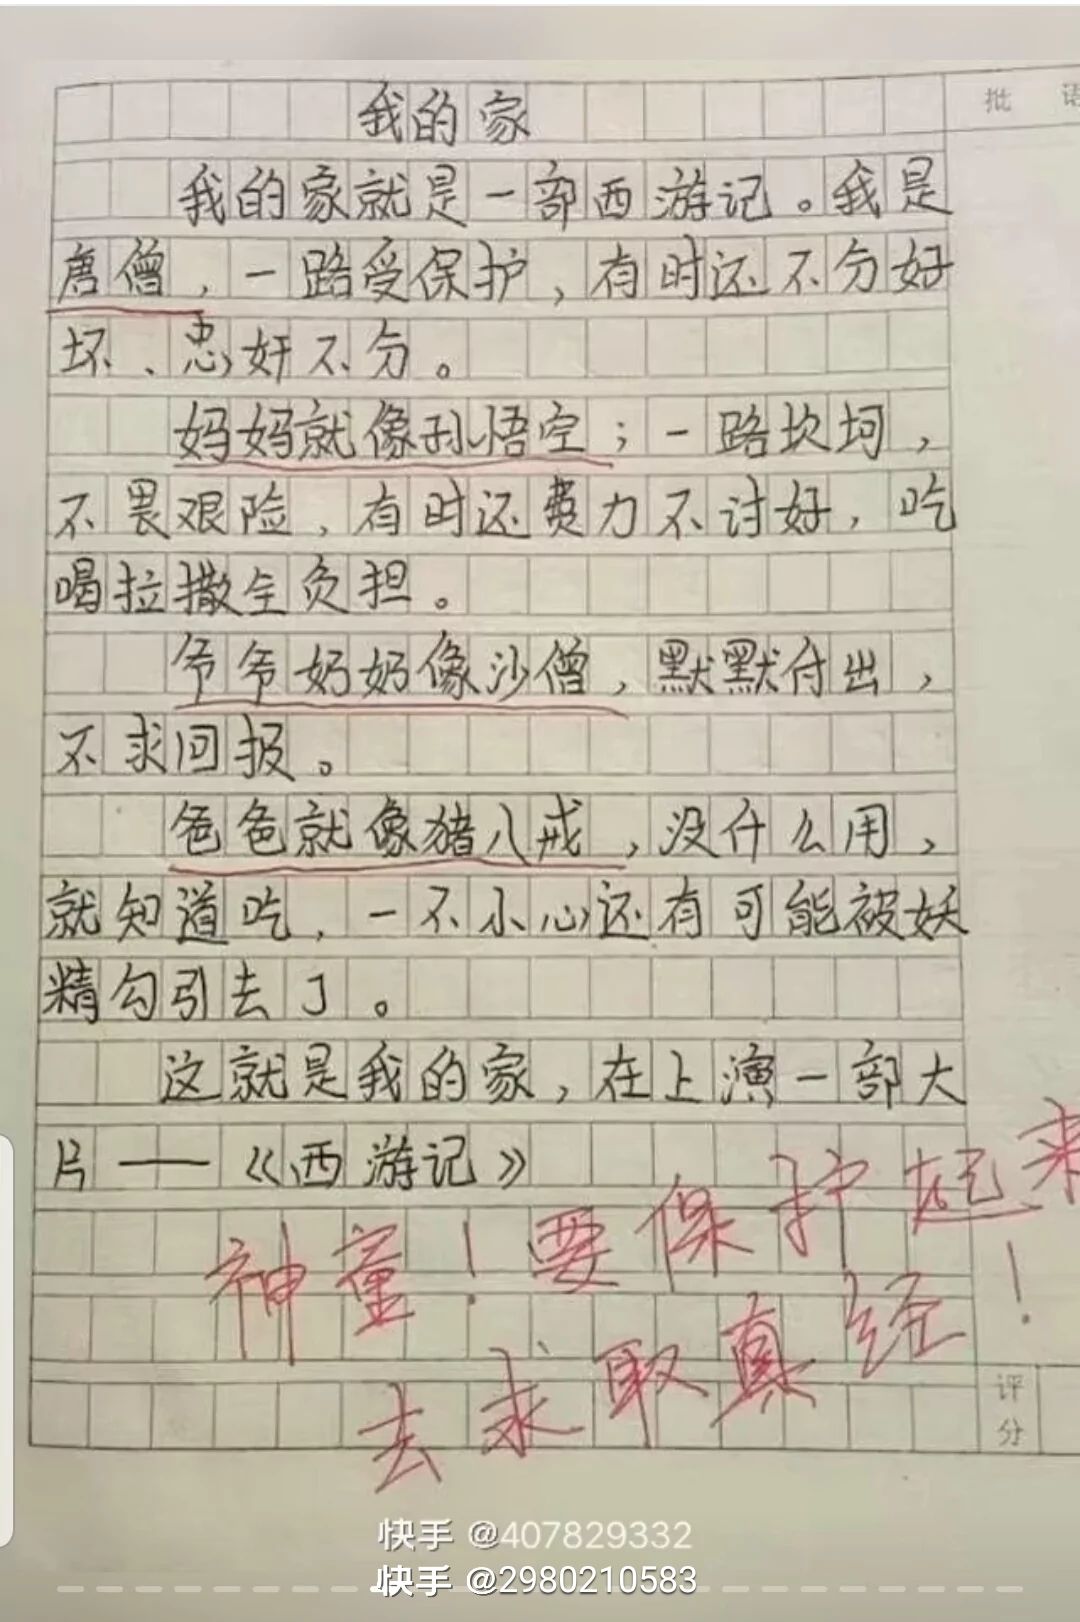 批语
我的家
我的家就是一部西游记。我是
唐僧，一路受保护，有时还不分好
坏、忠奸不分。
妈妈就像孙悟空；一路坎坷，
不畏艰险，有时还费力不讨好，吃
喝拉撒全负担。
爷爷奶奶像沙僧，默默付出，
不求回报。
爸爸就像猪八戒，没什么用，
就知道吃，一不小心还有可能被妖
精勾引去了。
这就是我的家，在上演一部大
片——《西游记》
神童！要保护起来！
去求取真经
评分
快手 @407829332
快手 @2980210583